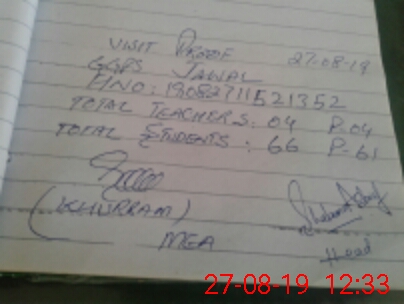 VISIT PROOF 27-08-19
GGPS JAWAL
TOTAL TEACHERS: 04 P-04
TOTAL STUDENTS: 66 P-61
(KHURRAM)
MEA Head
27-08-19 12:33